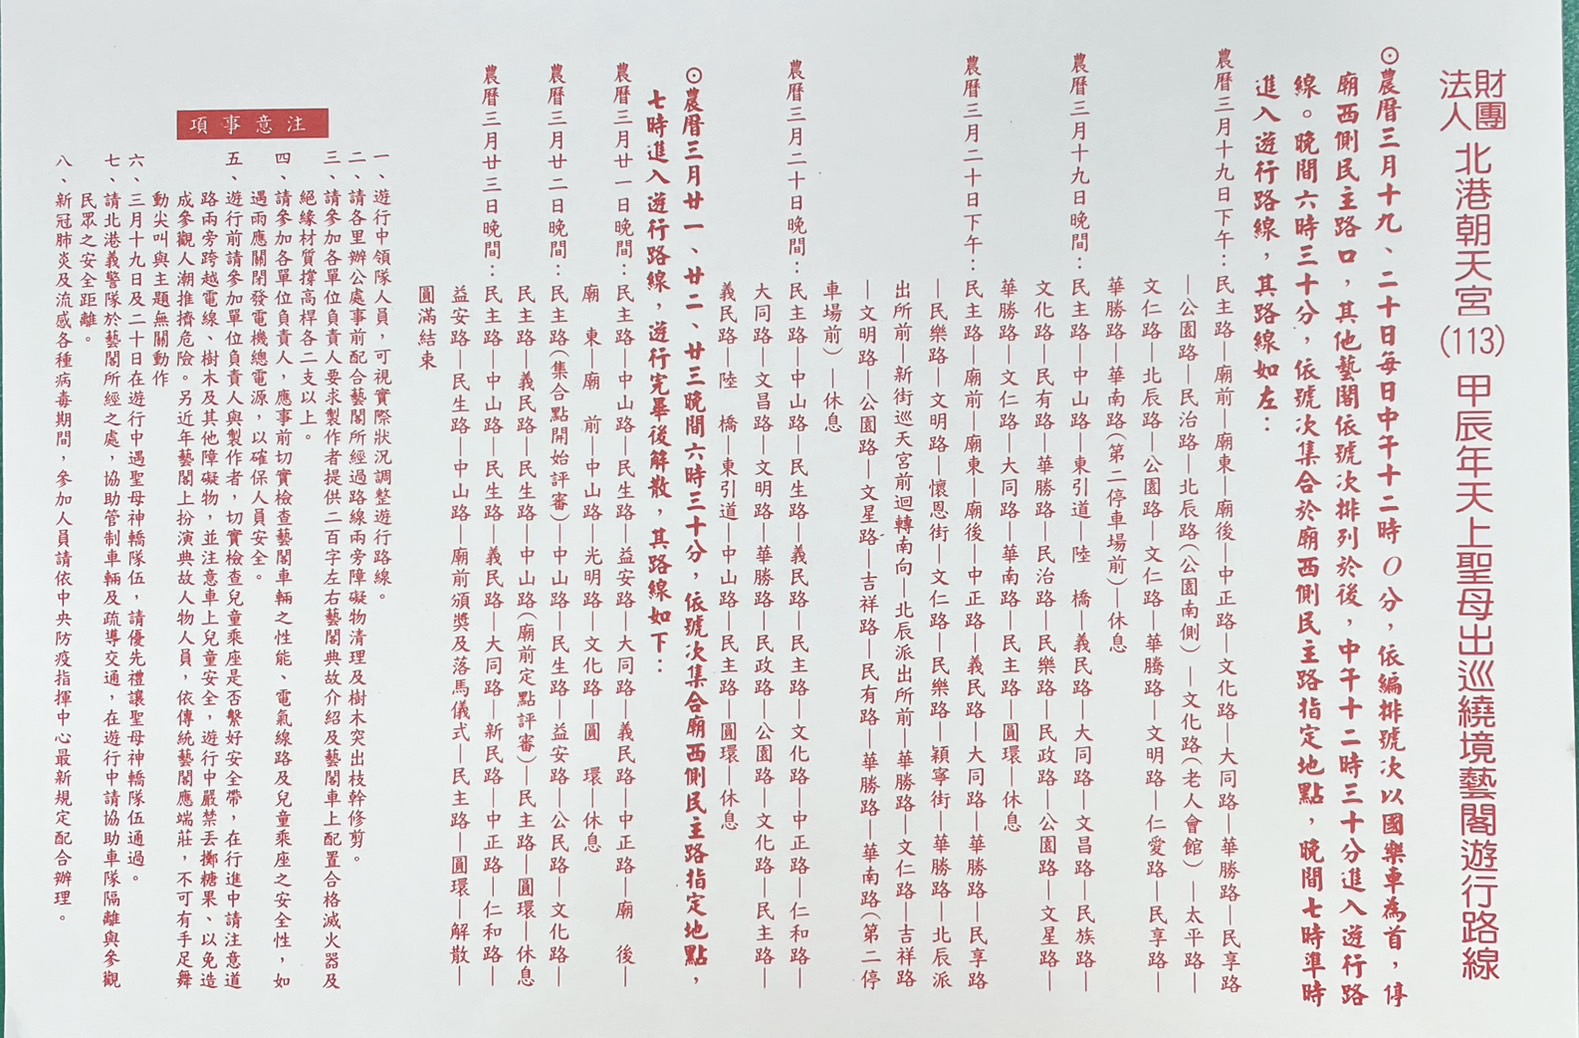 財團法人 北港朝天宮 (113) 甲辰年天上聖母出巡繞境藝閣遊行路線
⊙農曆三月十九、二十日每日中午十二時〇分，依編排號次以國樂車為首，停
廟西側民主路口，其他藝閣依號次排列於後，中午十二時三十分進入遊行路
線。晚間六時三十分，依號次集合於廟西側民主路指定地點，晚間七時準時
進入遊行路線，其路線如左：
農曆三月十九日下午：民主路—廟前—廟東—廟後—中正路—文化路—大同路—華勝路—民享路
—公園路—民治路—北辰路(公園南側)—文化路(老人會館)—太平路—
文仁路—北辰路—公園路—文仁路—華勝路—文明路—仁愛路—民享路—
華勝路—華南路(第二停車場前)—休息
農曆三月十九日晚間：民主路—中山路—東引道—陸橋—義民路—大同路—文昌路—民族路—
文化路—民有路—華勝路—民治路—民樂路—民政路—公園路—文星路—
華勝路—文仁路—大同路—華南路—民主路—圓環—休息
農曆三月二十日下午：民主路—廟前—廟東—廟後—中正路—義民路—大同路—華勝路—民享路
—民樂路—文明路—懷恩街—文仁路—民樂路—穎寧街—華勝路—北辰派
出所前—新街巡天宮前迴轉南向—北辰派出所前—華勝路—文仁路—吉祥路
—文明路—公園路—文星路—吉祥路—民有路—華勝路—華南路(第二停
車場前)—休息
農曆三月二十日晚間：民主路—中山路—民生路—義民路—民主路—文化路—中正路—仁和路—
大同路—文昌路—文明路—華勝路—民政路—公園路—文化路—民主路—
義民路—陸橋—東引道—中山路—民主路—圓環—休息
⊙農曆三月廿一、廿二、廿三晚間六時三十分，依號次集合廟西側民主路指定地點，
七時進入遊行路線，遊行完畢後解散，其路線如下：
農曆三月廿一日晚間：民主路—中山路—民生路—益安路—大同路—義民路—中正路—廟後—
廟東—廟前—中山路—光明路—文化路—圓環—休息
農曆三月廿二日晚間：民主路(集合點開始評審)—中山路—民生路—益安路—公民路—文化路—
民主路—義民路—民生路—中山路(廟前定點評審)—民主路—圓環—休息
農曆三月廿三日晚間：民主路—中山路—民生路—義民路—大同路—新民路—中正路—仁和路—
益安路—民生路—中山路—廟前頒獎及落馬儀式—民主路—圓環—解散—
圓滿結束
注意事項
一、遊行中領隊人員，可視實際狀況調整遊行路線。
二、請各里辦公處事前配合藝閣所經過路線兩旁障礙物清理及樹木突出枝幹修剪。
三、請參加各單位負責人要求製作者提供二百字左右藝閣典故介紹及藝閣車上配置合格滅火器及
絕緣材質撐高桿各二支以上。
四、請參加各單位負責人，應事前切實檢查藝閣車輛之性能、電氣線路及兒童乘座之安全性，如
遇雨應關閉發電機總電源，以確保人員安全。
五、遊行前請參加單位負責人與製作者，切實檢查兒童乘座是否繫好安全帶，在行進中請注意道
路兩旁跨越電線、樹木及其他障礙物，並注意車上兒童安全，遊行中嚴禁丟擲糖果、以免造
成參觀人潮推擠危險。另近年藝閣上扮演典故人物人員，依傳統藝閣應端莊，不可有手足舞
動尖叫與主題無關動作
六、三月十九日及二十日在遊行中遇聖母神轎隊伍，請優先禮讓聖母神轎隊伍通過。
七、請北港義警隊於藝閣所經之處，協助管制車輛及疏導交通，在遊行中請協助車隊隔離與參觀
民眾之安全距離。
八、新冠肺炎及流感各種病毒期間，參加人員請依中央防疫指揮中心最新規定配合辦理。